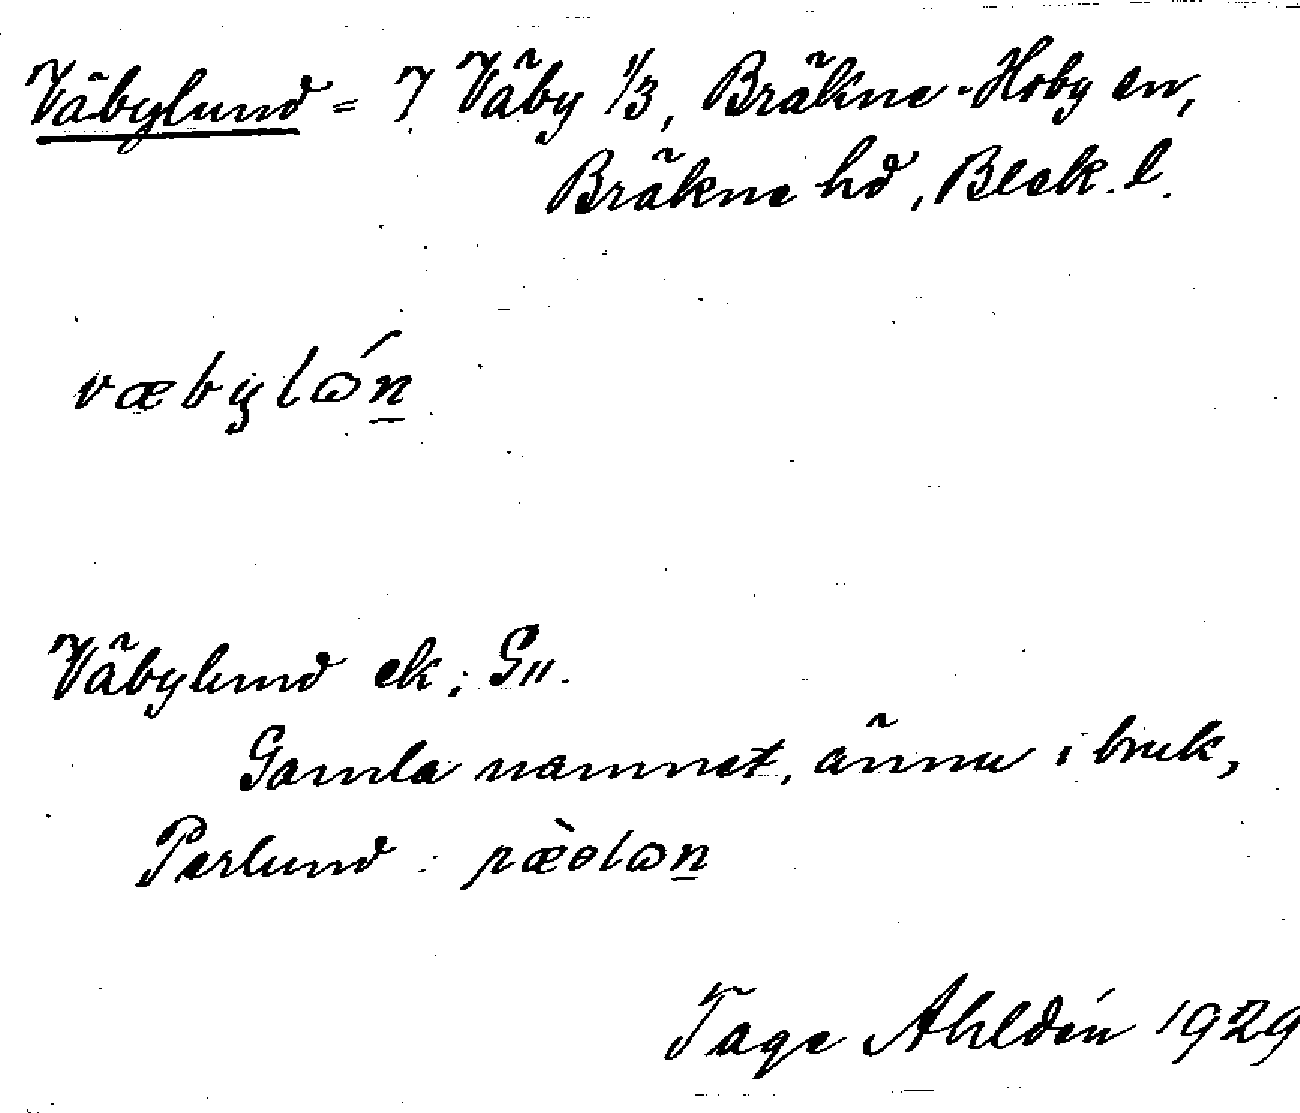 Väbylund = 7 Väby 1/3, Bräkne-Hoby sn,
Bräkne hd, Blek. l.
væbylɷ́n̲
Väbylund ek; G".
Gamla namnet, ännu i bruk,
Perlund : pæ̀əlɷn̲
Tage Ahldén 1929